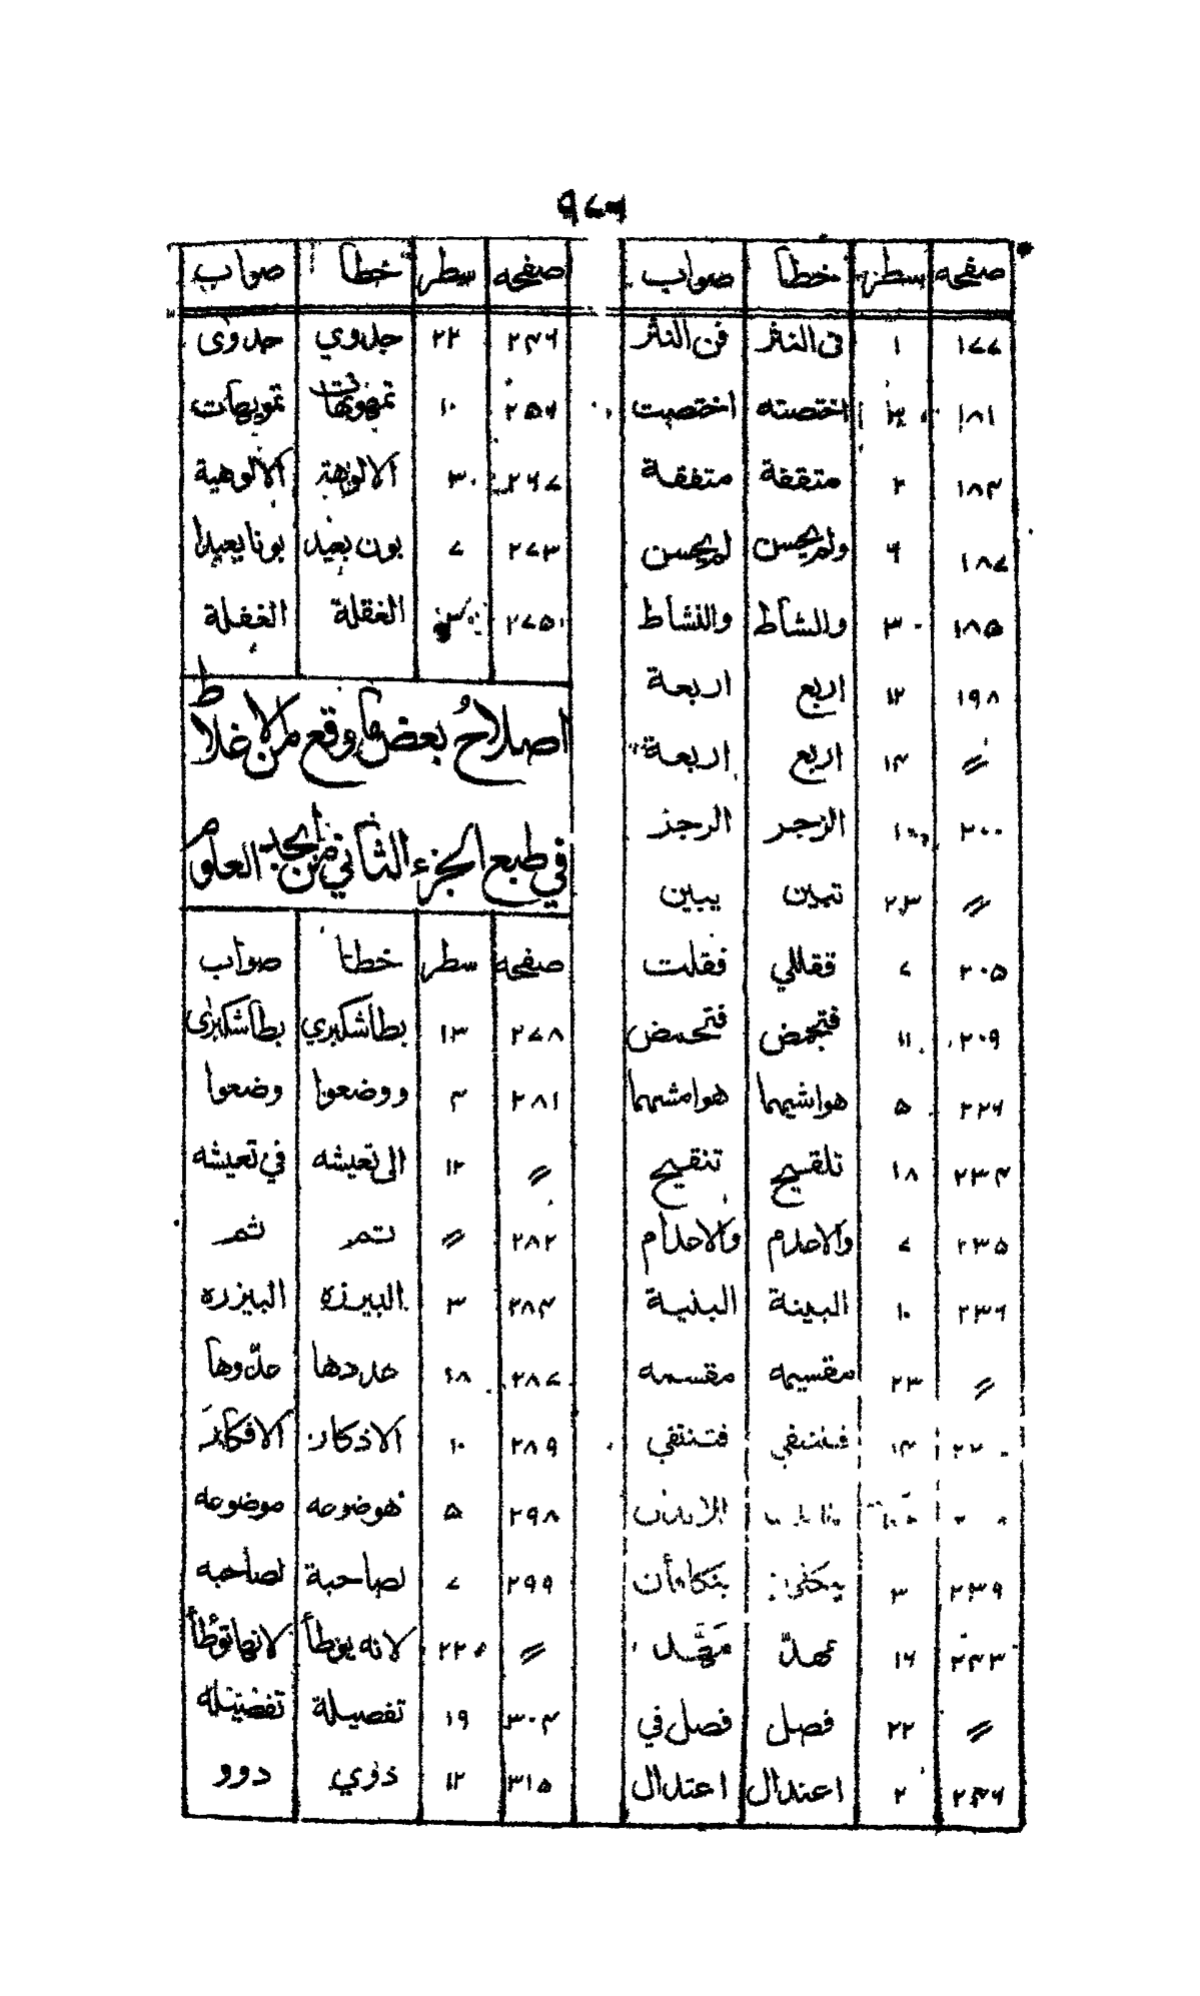 ٩٧٦
صفحه سطر خطأ صواب
١٧٧ ١ فى النثر فن النثر
١٨١ اختصته اختصت
١٨٤ ٢ متقفة متفقة
١٨٧ ٦ ولم يحسن لم يحسن
١٨٥ ٣٠ والشأط والنشأط
١٩٨ ١٢ اربع اربعة
〃 ١٤ اربع اربعة
٢٠٠ ١٠ الزجر الرجز
〃 ٢٣ تبين يبين
٢٠٥ ٧ فقاللي فقلت
٢٠٩ ١١ فتجمض فتحمض
٢٢٦ ٥ هواشيها هوامشها
٢٣٤ ١٨ تلقيح تنقيح
٢٣٥ ٧ والاحلام
٢٣٦ ١٠ البينة البنية
〃 ٢٣ مقسيمه مقسمه
١٤ فننتفي فتنتفي
٢٣٩ ٣ بتكاءأن
٢٤٣ ١٦ عهدّ مَهَّد
〃 ٢٢ فصل فصل في
٢٤٦ ٢ اعندال اعتدال
صفحه سطر خطأ صواب
٢٤٦ ٢٢ جلدوي جلدوى
٢٥٦ ١٠ تمويهات
٢٦٧ ٣٠ الالوهية
٢٧٣ ٧ بون بعيد بونا بعيدا
٢٧٥ الغقلة الغفلة
اصلاح بعض ما وقع من الاغلاط
في طبع الجزء الثاني من ابجد العلوم
صفحه سطر خطأ صواب
٢٧٨ ١٣ بطأشكبري بطأشكبرى
٢٨١ ٤ ووضعوا وضعوا
〃 ١٢ الى تعيشه في تعيشه
٢٨٢ 〃 تمر ثمر
٢٨٤ ٣ البيرزه البيزره
٢٨٧ ١٨ هددها
٢٨٩ ١٠ الاذكار الافكار
٢٩٨ ٥ هوضوعه موضوعه
٢٩٩ ٧ لصاحبة لصاحبه
〃 ٢٢ لانه يوطأ لانها توطأ
٣٠٤ ١٩ تفصيلة تفضيله
٣١٥ ١٢ ذوي دوو